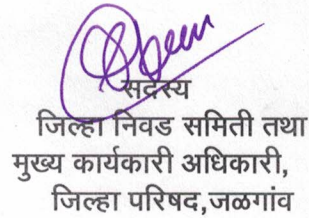 सदस्य
जिल्हा निवड समिती तथा
मुख्य कार्यकारी अधिकारी,
जिल्हा परिषद,जळगांव